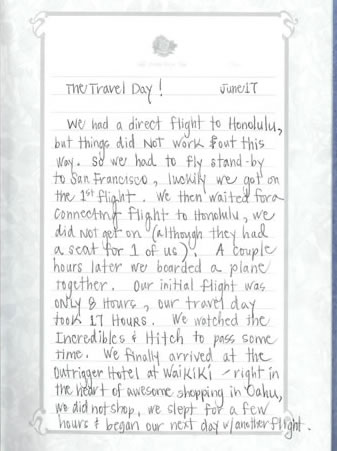 The Travel Day! June 17
We had a direct flight to Honolulu,
but things did Not work out this
way. So we had to fly stand-by
to San Francisco, luckily we got on
the 1st flight. We then waited for a
connecting flight to Honolulu, we
did Not get on (although they had
a seat for 1 of us). A couple
hours later we boarded a plane
together. Our initial flight was
ONLY 8 Hours, our travel day
took 17 Hours. We watched the
Incredibles & Hitch to pass some
time. We finally arrived at the
Outrigger Hotel at Waikiki - right in
the heart of awesome shopping in Oahu,
we did not shop, we slept for a few
hours & began our next day w/another flight.